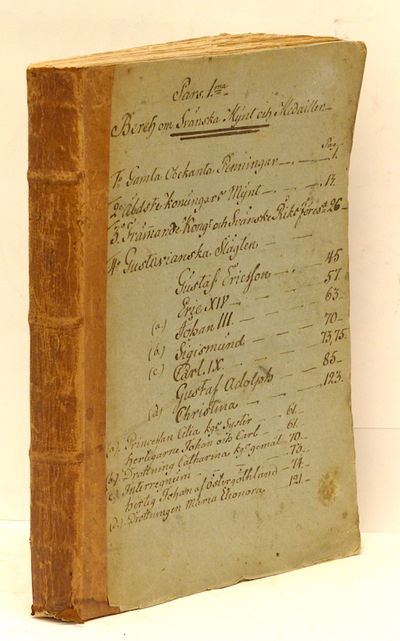 Pars. 1.ma
Berch om Svänska Mynt och Medailler
Pag.
1º Gamla Obekanta Penningar - - - 1.
2º Äldste Konungars Mynt - - - 17.
3º Främande Kong.r och Svänske Riks Förest. 26-
4º Gustavianska Släglen - -
Gustaf Ericson - - 45
Eric XIV - - - 57.
(a.) Johan III. - - - 63.
(b.) Sigismund - - - 70-
(c.) Carl. IX. - - - 73,75.
Gustaf Adolph - - - 85-
(d.) Christina - - - 123.
(a.) Princessan Cilia kgs Syster - 61.
hertigarne Johan och Carl - 61.
(b.) Drottning Catharina kgs gemål 70.
(c.) Interregnum - - - 73.-
hertig Johan af Östergöthland - 74.
(d.) Drottningen Maria Eleonora - - 121.-